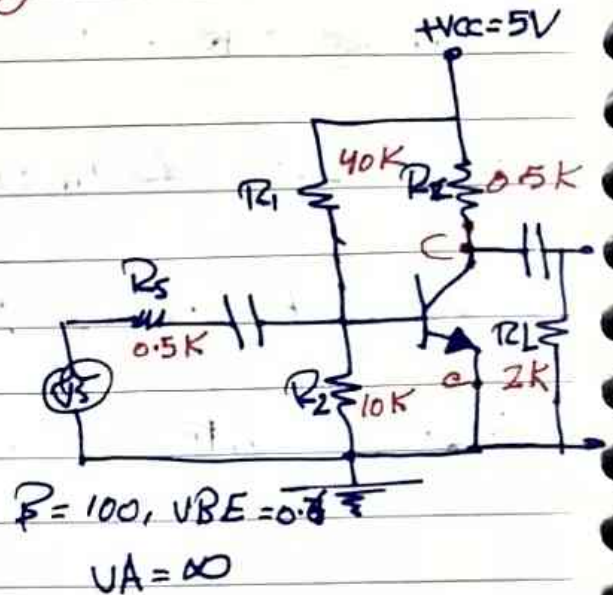 +VCC=5V
40K
R1
0.5K
C
RS
0.5K
VS
R2
10K
e
RL
2K
β= 100, VBE =
VA = ∞